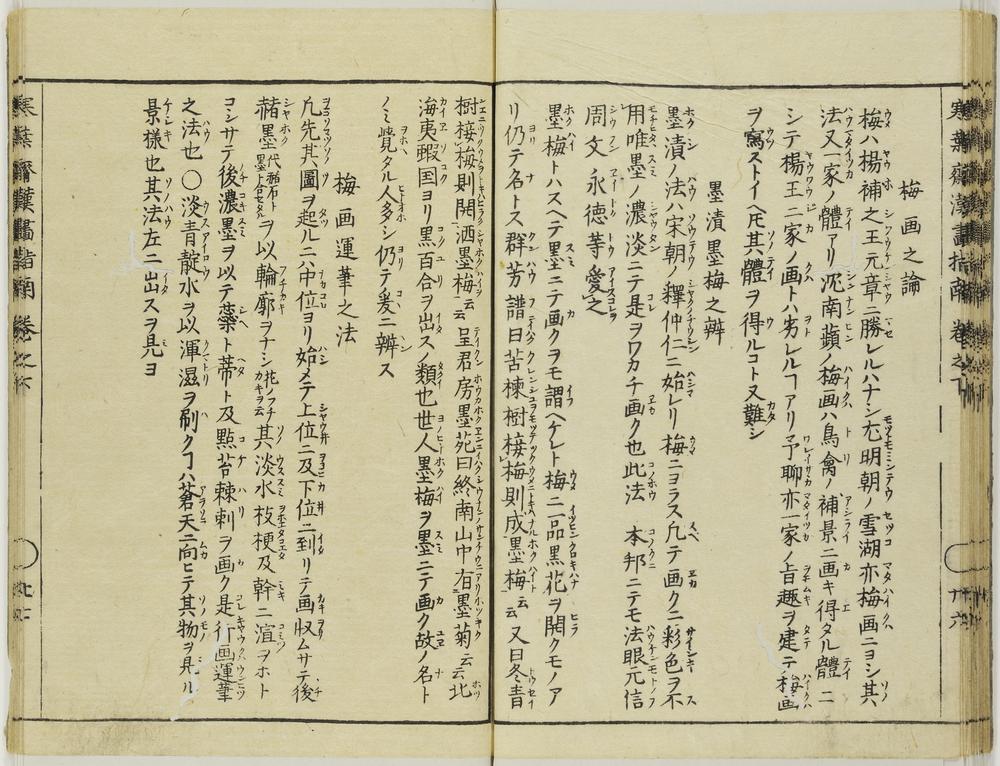 梅画之論
梅ハ楊補之王元章ニ勝レルハナシ尤明朝ノ雪湖亦梅画ニヨシ其
法又一家ノ體アリ沈南蘋ノ梅画ハ鳥禽ノ補景ニ画キ得タル體ニ
シテ楊王二家ノ画トハ劣レルヿアリ予聊亦一家ノ旨趣ヲ建テ梅画
ヲ寫ストイヘ𪜈其體ヲ得ルコト又難シ
墨漬墨梅之辨
墨漬ノ法ハ宋朝ノ釋仲仁ニ始レリ梅ニヨラス凡テ画クニ彩色ヲ不
用唯墨ノ濃淡ニテ是ヲワカチ画ク也此法 本邦ニテモ法眼元信
周文永徳等愛之
墨梅トハスヘテ墨ニテ画クヲモ謂ヘケレト梅ニ一品黒花ヲ開クモノア
リ仍テ名トス群芳譜曰苦楝樹接梅則成墨梅云又曰冬青
樹接梅則開洒墨梅云呈君房墨苑曰終南山中有墨菊云云北
海夷蝦国ヨリ黒百合ヲ出スノ類也世人墨梅ヲ墨ニテ画ク故ノ名ト
ノミ覚タル人多シ仍テ爰ニ辨ス
梅画運筆之法
凡先其圖ヲ起ルニハ中位ヨリ始メテ上位ニ及下位ニ到リテ画収ムサテ後
赭墨代赭石ト墨ト合セタルヲ以輪廓ヲナシ花ノフチカキヲ云其淡水枝梗及幹ニ渲ヲホト
コシサテ後濃墨ヲ以テ蘂ト蒂ト及點苔棘刺ヲ画ク是行画運筆
之法也〇淡青靛水ヲ以渾滋ヲ刷クヿハ蒼天ニ向ヒテ其物ヲ見ル
景様也其法左ニ出スヲ見ヨ
寒葉齋漢畫指南 巻之下
廿六
寒葉齋漢畫指南 巻之下
廿七